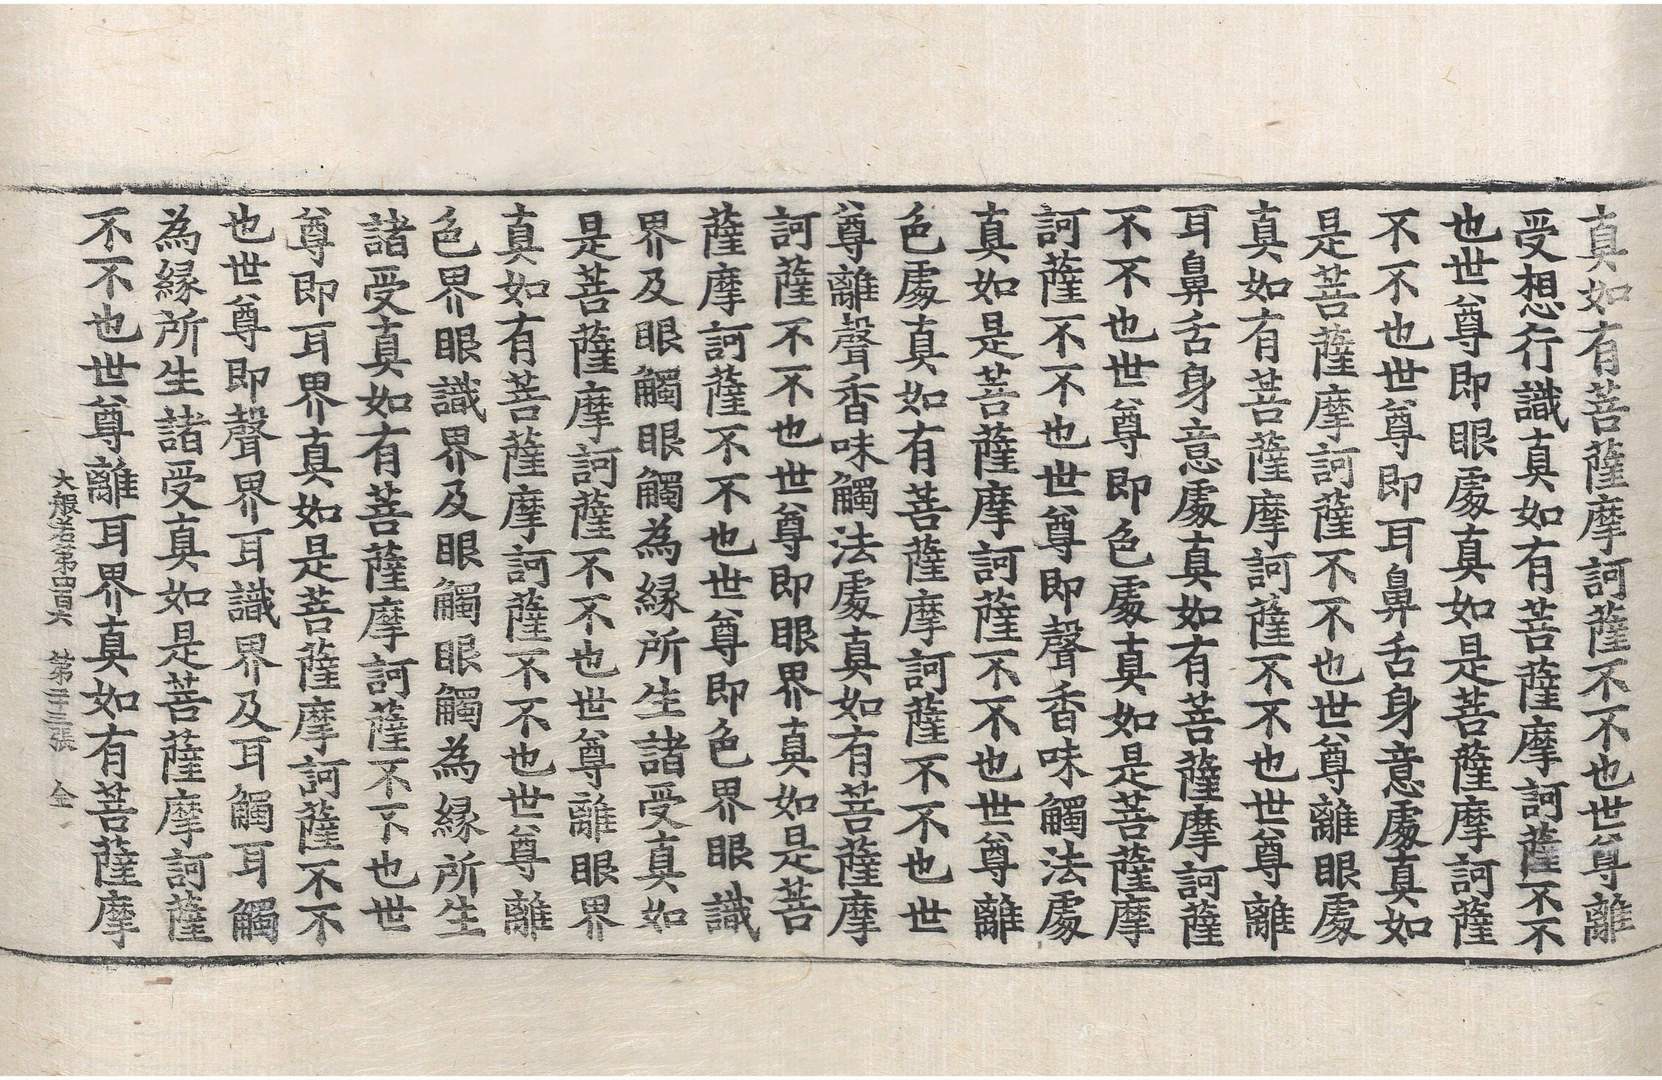 真如有菩薩摩訶薩不不也世尊離
受想行識真如有菩薩摩訶薩不不
也世尊即眼處真如是菩薩摩訶薩
不不也世尊即耳鼻舌身意處真如
是菩薩摩訶薩不不也世尊離眼處
真如有菩薩摩訶薩不不也世尊離
耳鼻舌身意處真如有菩薩摩訶薩
不不也世尊即色處真如是菩薩摩
訶薩不不也世尊即聲香味觸法處
真如是菩薩摩訶薩不不也世尊離
色處真如有菩薩摩訶薩不不也世
尊離聲香味觸法處真如有菩薩摩
訶薩不不也世尊即眼界真如是菩
薩摩訶薩不不也世尊即色界眼識
界及眼觸眼觸為縁所生諸受真如
是菩薩摩訶薩不不也世尊離眼界
真如有菩薩摩訶薩不不也世尊離
色界眼識界及眼觸眼觸為縁所生
諸受真如有菩薩摩訶薩不不也世
尊即耳界真如是菩薩摩訶薩不不
也世尊即聲界耳識界及耳觸耳觸
為縁所生諸受真如是菩薩摩訶薩
不不也世尊離耳界真如有菩薩摩
大般若第四百六 第二十三張 仝